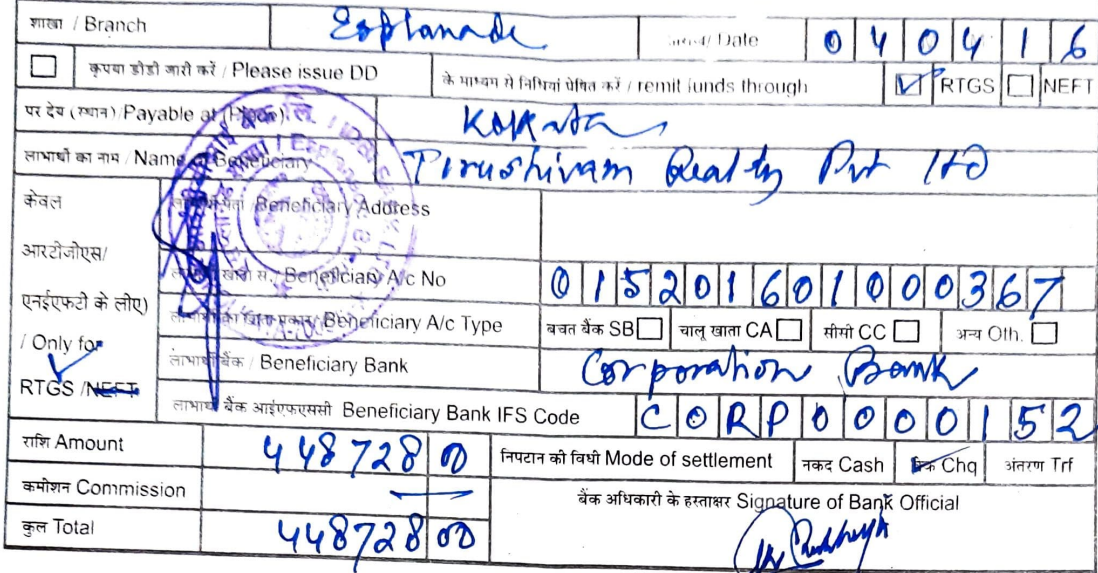 शाखा / Branch Esplanade Date 040416
कृपया डीडी जारी करें / Please issue DD के माध्यम से निधियां प्रेषित करें / remit funds through RTGS NEFT
पर देय (स्थान) / Payable at (Place) Kolkata
लाभार्थी का नाम / Name of Beneficiary Tirushivam Realty Pvt Ltd
केवल Beneficiary Address
आरटीजीएस/
Beneficiary A/c No 015201601000367
एनईएफटी के लीए) Beneficiary A/c Type बचत बैंक SB चालू खाता CA सीसी CC अन्य Oth.
/ Only for लाभार्थी बैंक / Beneficiary Bank Corporation Bank
RTGS /NEFT
लाभार्थी बैंक आईएफएससी Beneficiary Bank IFS Code CORP0000152
राशि Amount 448728 00 निपटान की विधी Mode of settlement नकद Cash चेक Chq अंतरण Trf
कमीशन Commission — बैंक अधिकारी के हस्ताक्षर Signature of Bank Official
कुल Total 448728 00